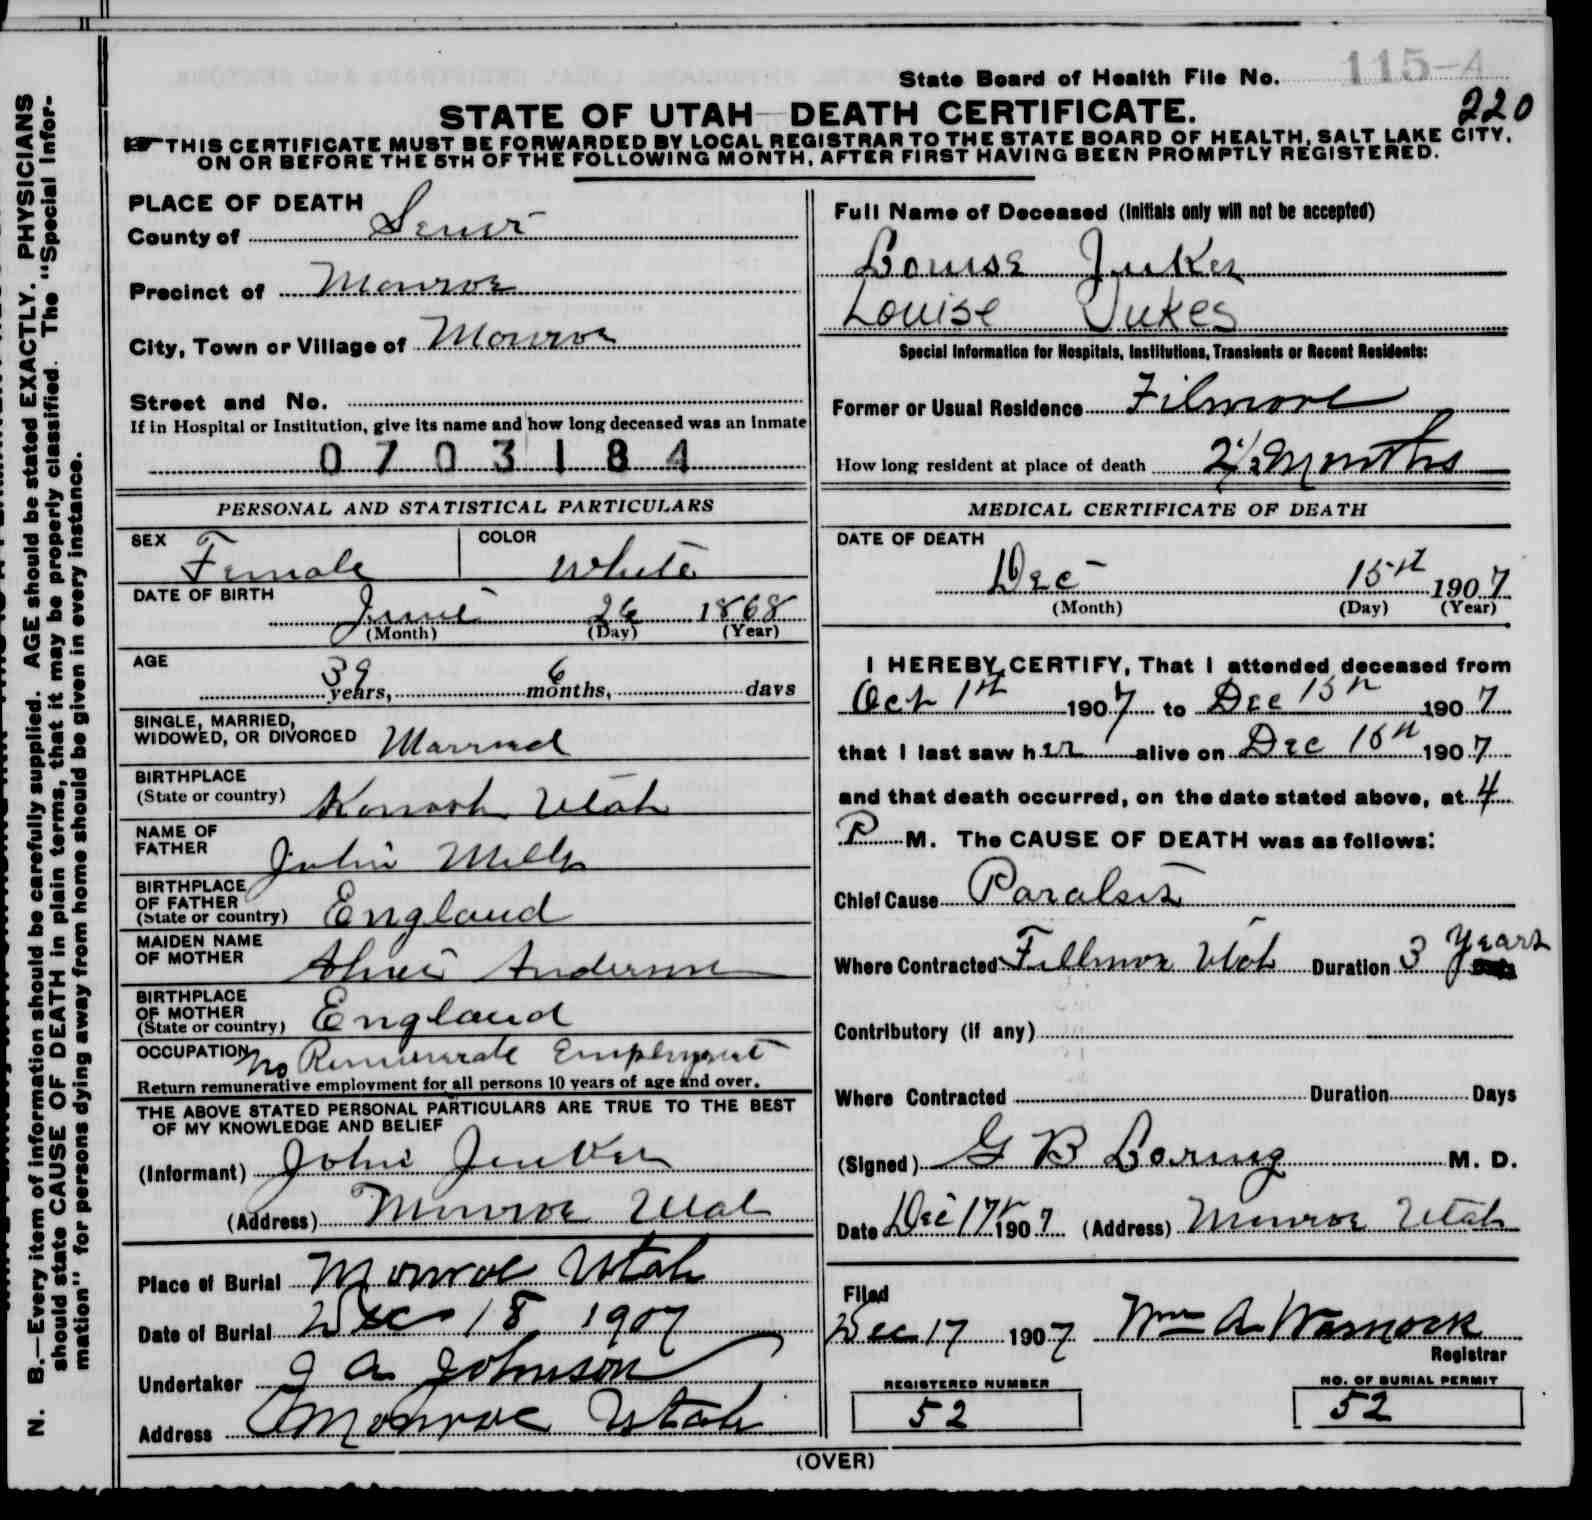 State Board of Health File No. 115-A
220
STATE OF UTAH DEATH CERTIFICATE.
THIS CERTIFICATE MUST BE FORWARDED BY LOCAL REGISTRAR TO THE STATE BOARD OF HEALTH, SALT LAKE CITY,
ON OR BEFORE THE 5TH OF THE FOLLOWING MONTH, AFTER FIRST HAVING BEEN PROMPTLY REGISTERED.
N. B.—Every item of information should be carefully supplied. AGE should be stated EXACTLY. PHYSICIANS
should state CAUSE OF DEATH in plain terms, that it may be properly classified. The "Special Infor-
mation" for persons dying away from home should be given in every instance.
PLACE OF DEATH
County of Sevier
Precinct of Monroe
City, Town or Village of Monroe
Street and No.
If in Hospital or Institution, give its name and how long deceased was an inmate
0703184
PERSONAL AND STATISTICAL PARTICULARS
SEX Female COLOR White
DATE OF BIRTH
June 26 1868
(Month) (Day) (Year)
AGE
39 years, 6 months, days
SINGLE, MARRIED,
WIDOWED, OR DIVORCED Married
BIRTHPLACE
(State or country) Kanosh Utah
NAME OF
FATHER John Mills
BIRTHPLACE
OF FATHER
(State or country) England
MAIDEN NAME
OF MOTHER Anderson
BIRTHPLACE
OF MOTHER
(State or country) England
OCCUPATION No Remunerate Employment
Return remunerative employment for all persons 10 years of age and over.
THE ABOVE STATED PERSONAL PARTICULARS ARE TRUE TO THE BEST
OF MY KNOWLEDGE AND BELIEF
(Informant) John Jukes
(Address) Monroe Utah
Place of Burial Monroe Utah
Date of Burial Dec 18 1907
Undertaker J A Johnson
Address Monroe Utah
Full Name of Deceased (Initials only will not be accepted)
Louise Jukes
Louise Jukes
Special Information for Hospitals, Institutions, Transients or Recent Residents:
Former or Usual Residence Filmore
How long resident at place of death 2 1/2 Months
MEDICAL CERTIFICATE OF DEATH
DATE OF DEATH
Dec 15th 1907
(Month) (Day) (Year)
I HEREBY CERTIFY, That I attended deceased from
Oct 1st 1907 to Dec 15th 1907
that I last saw her alive on Dec 15th 1907
and that death occurred, on the date stated above, at 4
P M. The CAUSE OF DEATH was as follows:
Chief Cause Paralsis
Where Contracted Fillmore Utah Duration 3 Years
Contributory (if any)
Where Contracted Duration Days
(Signed) G B Loring M. D.
Date Dec 17th 1907 (Address) Monroe Utah
Filed
Dec 17 1907 Wm A Warnock
Registrar
REGISTERED NUMBER
52
NO. OF BURIAL PERMIT
52
(OVER)